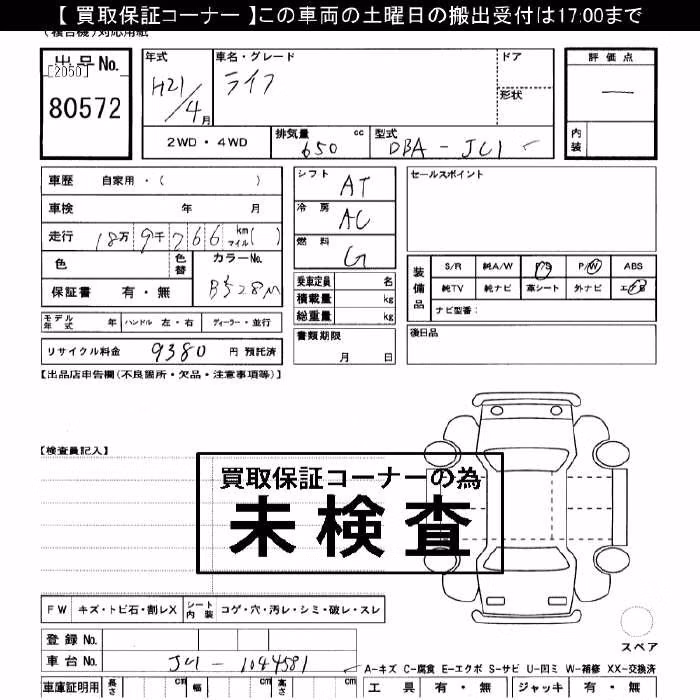 【 買取保証コーナー 】この車両の土曜日の搬出受付は17:00まで
(複合機)対応用紙
出品No.
[2050]
80572
年式
H21/4月
車名・グレード
ライフ
ドア
形状
評価点
—
内装
2WD・4WD
排気量 650 cc
型式 DBA-JC1
車歴 自家用・( )
車検 年 月
走行 18万9千766 km マイル( )
色 色替 カラーNo.
B528M
保証書 有・無
モデル年式 年 ハンドル 左・右 ディーラー・並行
リサイクル料金 9380 円 預託済
シフト AT
冷房 AC
燃料 G
乗車定員 名
積載量 kg
総重量 kg
書類期限
月 日
セールスポイント
装備品
S/R 純A/W P/S P/W ABS
純TV 純ナビ 革シート 外ナビ エアB
ナビ型番:
後日品
【出品店申告欄(不良箇所・欠品・注意事項等)】
【検査員記入】
買取保証コーナーの為
未検査
FW キズ・トビ石・割レX シート内装 コゲ・穴・汚レ・シミ・破レ・スレ
登録No.
車台No. JC1-1044581
スペア
A-キズ C-腐食 E-エクボ S-サビ U-凹ミ W-補修 XX-交換済
車庫証明用 長さ cm 幅 cm 高さ cm
工具 有・無 ジャッキ 有・無